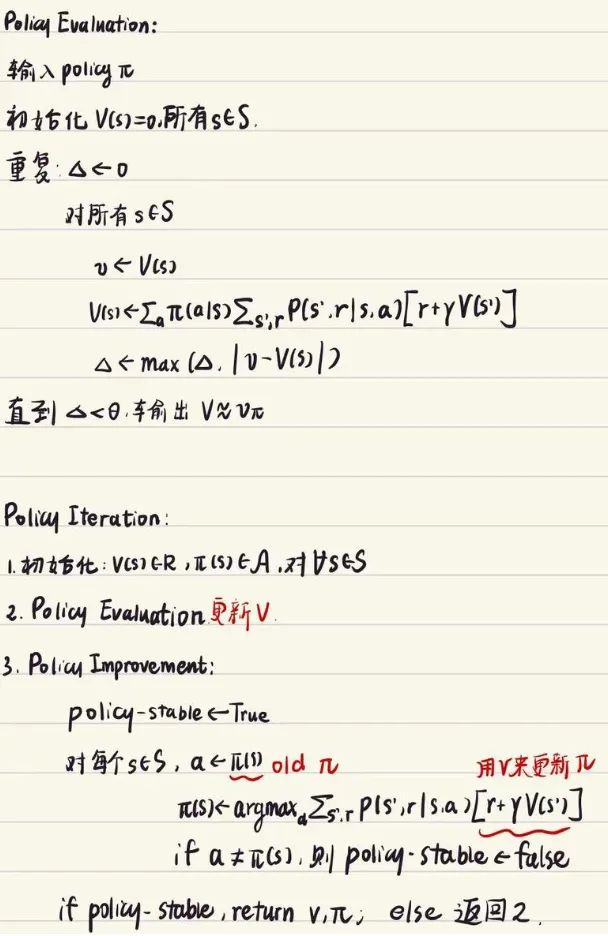 Policy Evaluation:
输入 policy π
初始化 V(s)=0,所有s∈S.
重复: Δ←0
对所有 s∈S
v ← V(s)
V(s)←∑ₐπ(a|s)∑s',r P(s',r|s,a)[r+γV(s')]
Δ ← max(Δ, |v-V(s)|)
直到 Δ<θ,输出 V≈vπ
Policy Iteration:
1.初始化: V(s)∈R, π(s)∈A, 对∀s∈S
2. Policy Evaluation 更新V.
3. Policy Improvement:
policy-stable←True
对每个s∈S, a←π(s) old π 用V来更新π
π(s)←argmaxₐ∑s',r P(s',r|s,a)[r+γV(s')]
if a≠π(s), 则 policy-stable←false
if policy-stable, return v,π; else 返回2.